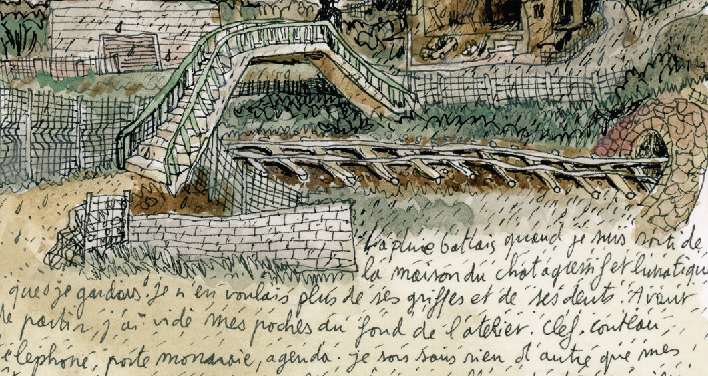 La pluie battait quand je suis sorti de
la maison du chat agressif et lunatique
que je gardais. Je n'en voulais plus de ses griffes et de ses dents. Avant
de partir, j'ai vidé mes poches du fond de l'atelier. Clef. couteau
elephone, porte monnaie, agenda. je sors sans rien d'autre que mes